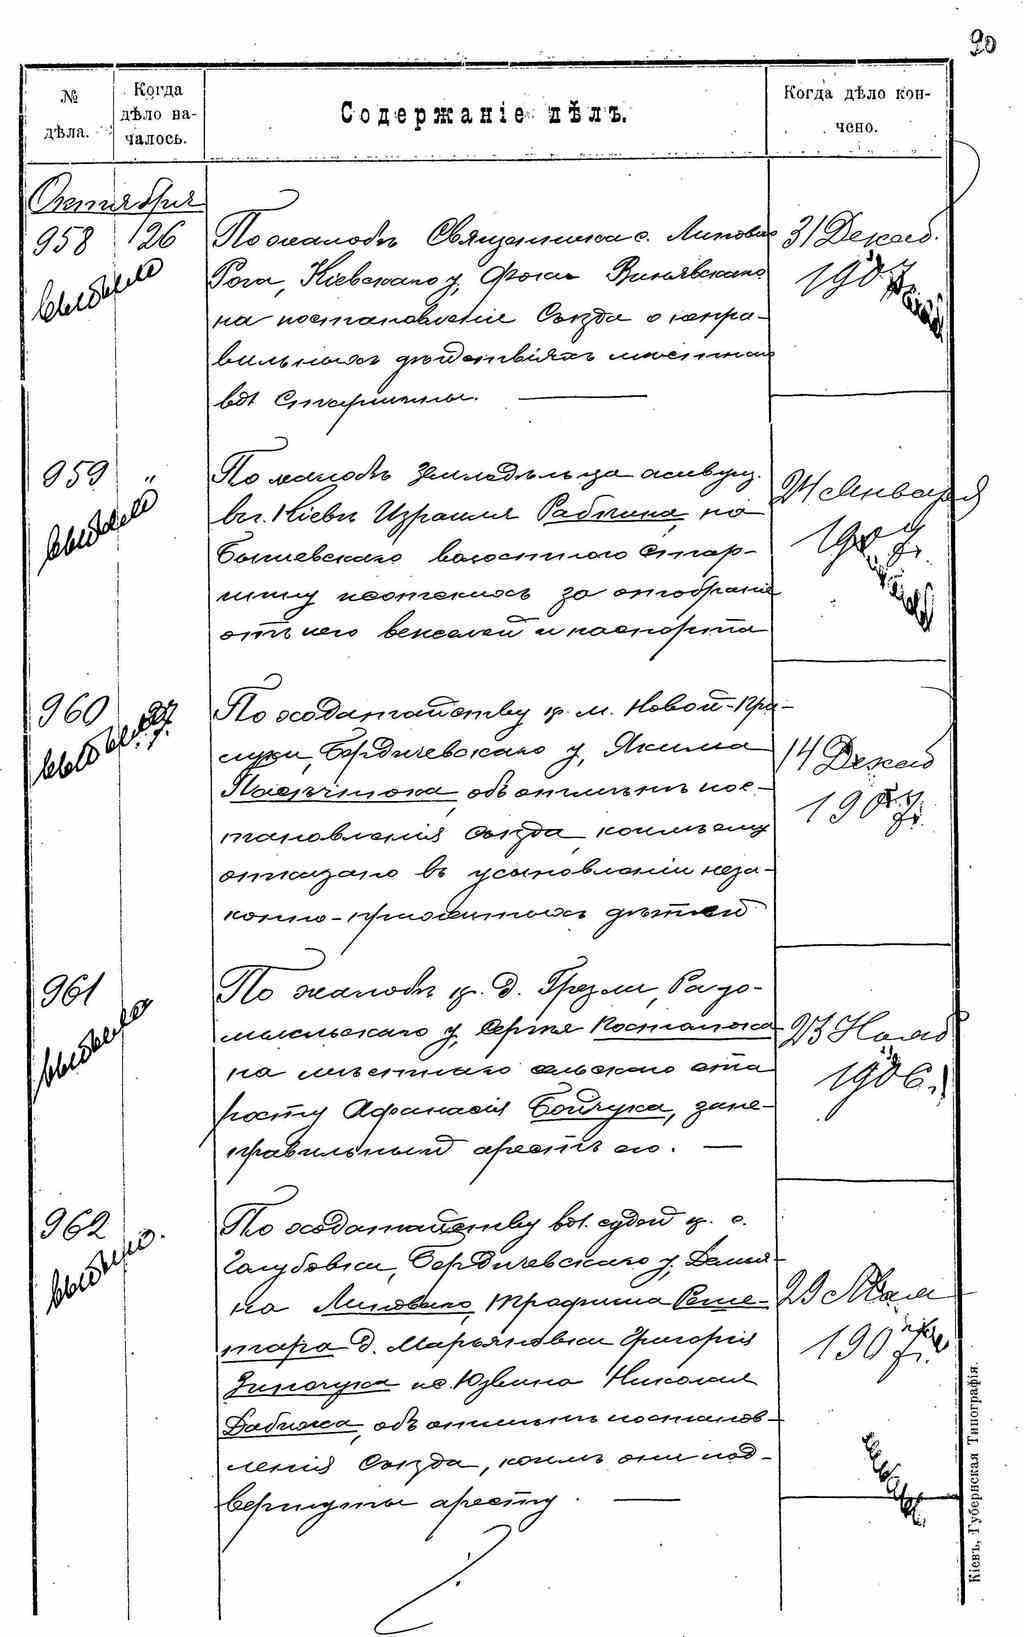 90
№ дѣла.
Когда дѣло началось.
Содержаніе дѣлъ.
Когда дѣло кончено.
Октября
958 26
выбыло
По жалобѣ Священника с. Липоваго
Рога, Кіевскаго у, Фоки
на постановленіе Съѣзда о неправильныхъ
дѣйствіяхъ мѣстнаго
вол. Старшины.
31 Декаб.
190
959 "
выбыло
По жалобѣ Земледѣльца живущ.
въ г. Кіевѣ Израиля Рабчина на
Бышевскаго волостного Старшину
за отобраніе
отъ него векселей и паспорта
24 Января
190 г.
960 27
выбыло
По ходатайству кр. м. Новой-Прилуки,
Бердичевскаго у, Якима
объ отмѣнѣ постановленія
Съѣзда, коимъ ему
отказано въ усыновленіи незаконно-прижитыхъ
дѣтей
14 Декаб
190 г.
961
выбыло
По жалобѣ кр. д. Грезли, Радомысльскаго
у, Сергѣя Костюка
на мѣстнаго сельскаго старосту
Афанасія Бойчука, за неправильный
арестъ его.
23 Нояб
1906 г.
962
выбыло.
По ходатайству вол. судей кр. с.
Голубовки, Бердичевскаго у, Демьяна
Липоваго, Трофима Решетара
д. Марьяновки Григорія
и с. Юзвина Николая
Дабижа, объ отмѣнѣ постановленія
Съѣзда, коимъ они подвергнуты
аресту.
29 Мая
190 г.
Кіевъ, Губернская Типографія.